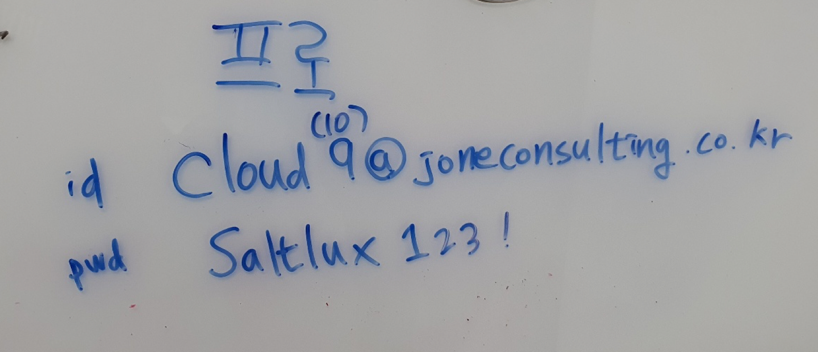 프로
(10)
id Cloud 9@joneconsulting.co.kr
pwd Saltlux 123!